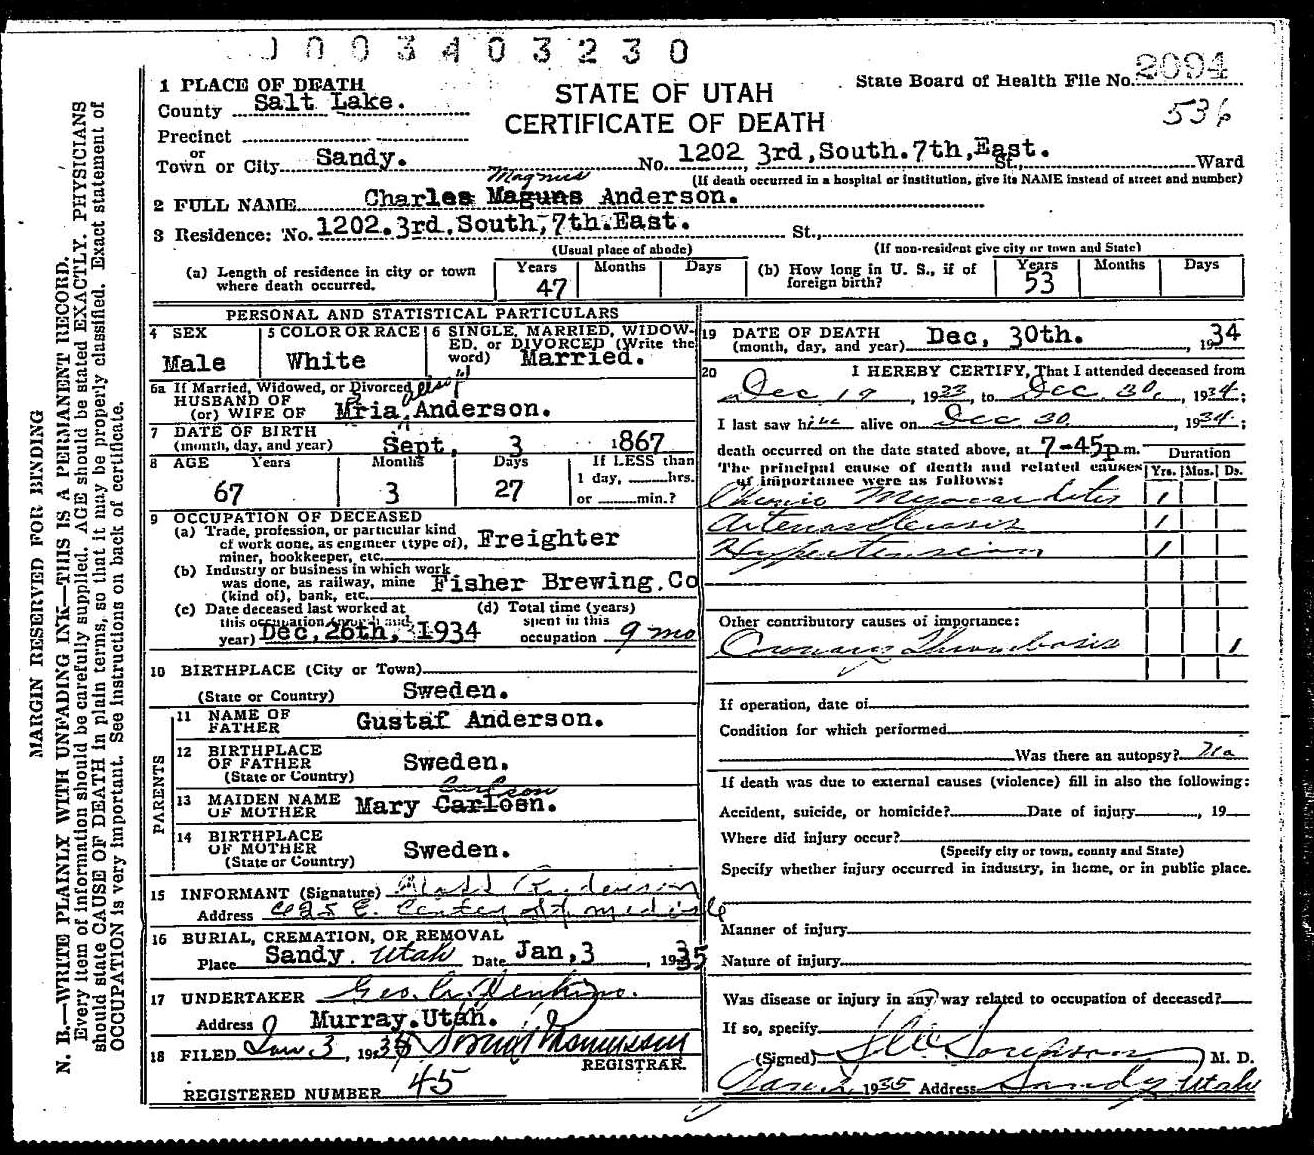 1003403230
STATE OF UTAH
CERTIFICATE OF DEATH
State Board of Health File No. 2094
536
1 PLACE OF DEATH
County Salt Lake.
Precinct
or
Town or City Sandy. No. 1202 3rd, South. 7th, East. St., Ward
(If death occurred in a hospital or institution, give its NAME instead of street and number)
Magnus
2 FULL NAME Charles Maguns Anderson.
3 Residence: No. 1202. 3rd. South, 7th. East. St.,
(Usual place of abode) (If non-resident give city or town and State)
(a) Length of residence in city or town where death occurred. Years 47 Months Days
(b) How long in U. S., if of foreign birth? Years 53 Months Days
PERSONAL AND STATISTICAL PARTICULARS
4 SEX Male
5 COLOR OR RACE White
6 SINGLE, MARRIED, WIDOWED, or DIVORCED (Write the word) Married.
6a If Married, Widowed, or Divorced
HUSBAND OF
(or) WIFE OF Mria Anderson.
7 DATE OF BIRTH
(month, day, and year) Sept, 3 1867
8 AGE Years 67 Months 3 Days 27 If LESS than 1 day, hrs. or min.?
9 OCCUPATION OF DECEASED
(a) Trade, profession, or particular kind of work done, as engineer (type of), miner, bookkeeper, etc. Freighter
(b) Industry or business in which work was done, as railway, mine (kind of), bank, etc. Fisher Brewing, Co
(c) Date deceased last worked at this occupation (month and year) Dec, 26th, 1934
(d) Total time (years) spent in this occupation 9 mo
10 BIRTHPLACE (City or Town)
(State or Country) Sweden.
PARENTS
11 NAME OF FATHER Gustaf Anderson.
12 BIRTHPLACE OF FATHER
(State or Country) Sweden.
Carlson
13 MAIDEN NAME OF MOTHER Mary Carloen.
14 BIRTHPLACE OF MOTHER
(State or Country) Sweden.
15 INFORMANT (Signature) Anderson
Address E. Center St. Midvale
16 BURIAL, CREMATION, OR REMOVAL
Place Sandy. Utah Date Jan, 3, 1935
17 UNDERTAKER Geo. Jenkins.
Address Murray. Utah.
18 FILED Jan 3, 1935 Rasmussen
REGISTRAR.
REGISTERED NUMBER 45
19 DATE OF DEATH
(month, day, and year) Dec, 30th. , 1934
20 I HEREBY CERTIFY, That I attended deceased from
Dec 19, 1933, to Dec. 30, 1934;
I last saw him alive on Dec 30, 1934;
death occurred on the date stated above, at 7-45 p.m.
Duration
The principal cause of death and related causes of importance were as follows: Yrs. Mos. Ds.
Chronic Myocarditis 1
Arteriosclerosis 1
Hypertension 1
Other contributory causes of importance:
Coronary Thrombosis 1
If operation, date of
Condition for which performed
Was there an autopsy? No
If death was due to external causes (violence) fill in also the following:
Accident, suicide, or homicide? Date of injury , 19
Where did injury occur?
(Specify city or town, county and State)
Specify whether injury occurred in industry, in home, or in public place.
Manner of injury
Nature of injury
Was disease or injury in any way related to occupation of deceased?
If so, specify
(Signed) Sorenson M. D.
Jan. 2, 1935 Address Sandy Utah
MARGIN RESERVED FOR BINDING
N. B.—WRITE PLAINLY WITH UNFADING INK—THIS IS A PERMANENT RECORD.
Every item of information should be carefully supplied. AGE should be stated EXACTLY. PHYSICIANS
should state CAUSE OF DEATH in plain terms, so that it may be properly classified. Exact statement of
OCCUPATION is very important. See instructions on back of certificate.